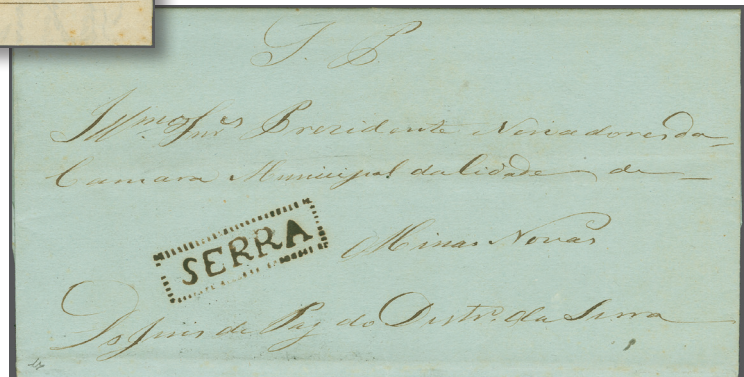 S. P.
Illmos Snres Prezidente Veriadores da
Camara Municipal da Cidade de
Minas Novas
SERRA
Do Juis de Paz do Distro. da Serra